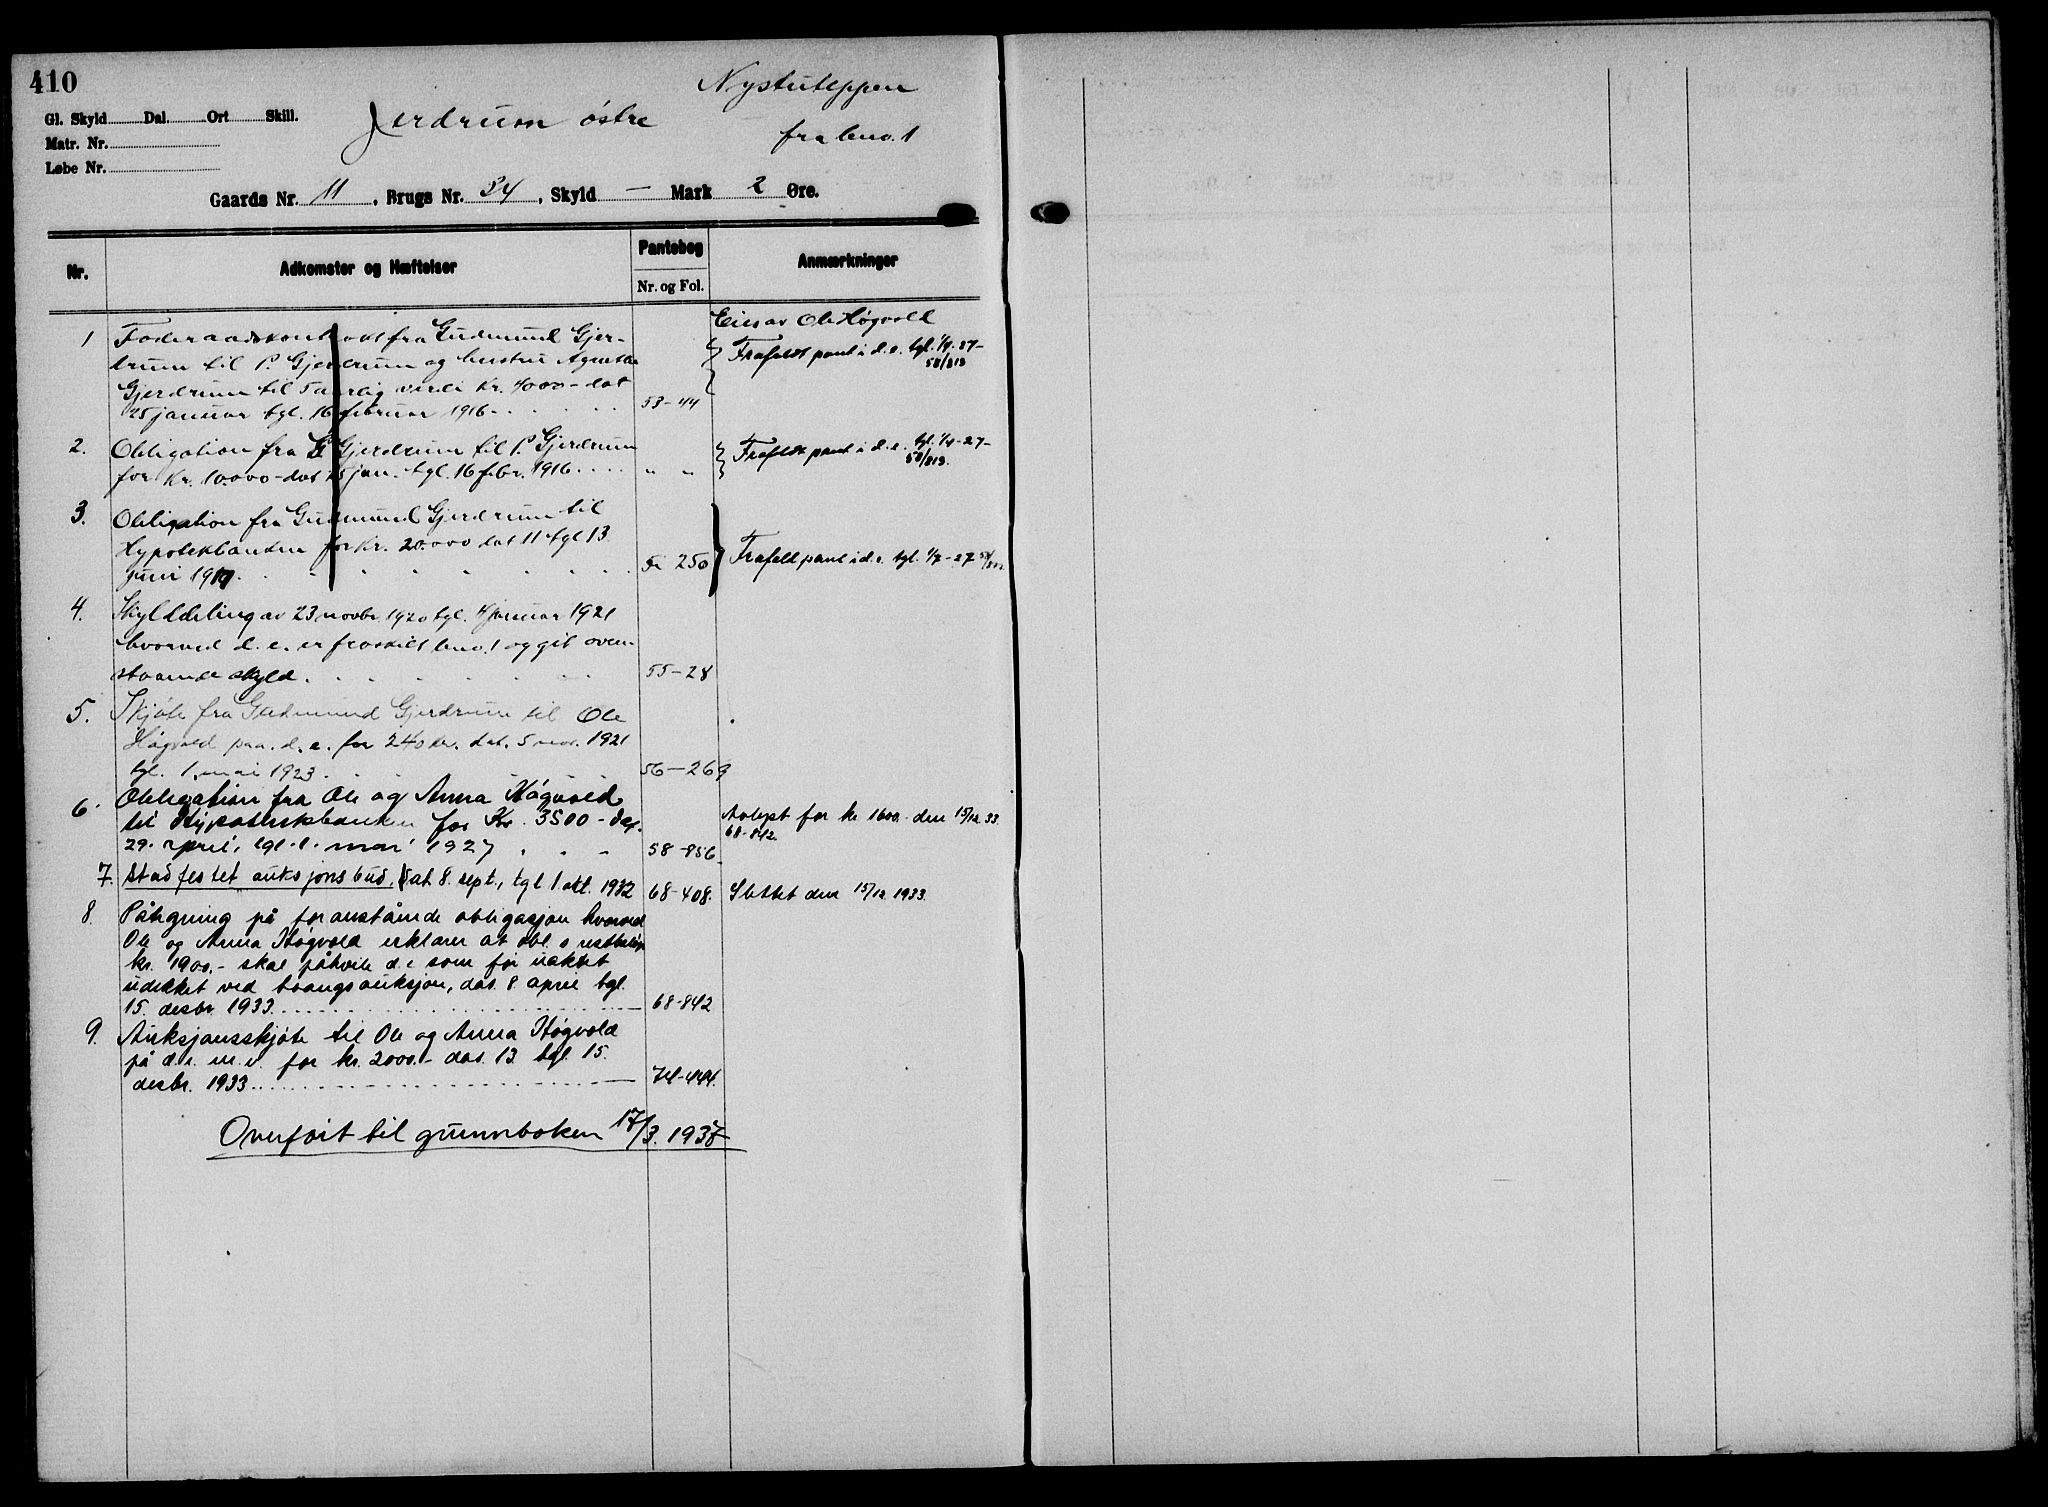 410
Nystuteppen
Gl. Skyld Dal. Ort Skill.
Jerdrum østre
fra bno. 1
Matr. Nr.
Løbe Nr.
Gaards Nr. 11, Brugs Nr. 34, Skyld — Mark 2 Øre.
Nr. Adkomster og Hæftelser Pantebog Nr. og Fol. Anmærkninger
Eies av Ole Høgvold
1 Føderaadskontrakt fra Gudmund Gjer-
drum til P. Gjerdrum og hustru Agnethe
Gjerdrum til 5 aarlig verdi Kr. 4000 - dat
25 januar tgl. 16 februar 1916 - 53-44
Frafaldt pant i d. e. tgl. 1/4-27-
58/813
2. Obligation fra G Gjerdrum til P. Gjerdrum
for Kr. 10.000 - dat 25 jan. tgl. 16 febr. 1916 " "
Frafaldt pant i d. e. tgl. 1/4-27-
58/813.
3. Obligation fra Gudmund Gjerdrum til
Hypotekbanken for Kr. 20.000 dat 11 tgl 13
juni 1917 250 Frafaldt pant i d. e. tgl. 1/4-27
4. Skylddeling av 23 novbr. 1920 tgl. 4 januar 1921
hvorved d. e. er fraskilt bno. 1 og git oven-
staaende skyld. 55-28
5. Skjøte fra Gudmund Gjerdrum til Ole
Høgvold paa d. e. for 240 kr. dat. 5 nov. 1921
tgl. 1. mai 1923. 56-269
6. Obligation fra Ole og Anna Høgvold
til Hypotekbanken for Kr. 3500 - dat.
29. april, tgl. 1. mai 1927 58-856
Avlyst for kr 1600.- den 15/12 33.
68-842.
7. Stadfestet auksjonsbud, dat 8. sept., tgl 1. okt. 1932 68-408. Slettet den 15/12 1933.
8. Påtegning på foranstående obligasjon hvorved
Ole og Anna Høgvold erklærer at obl.s restbeløp
kr. 1900.- skal påhvile d. e som før uaktet
udekket ved tvangsauksjon, dat. 8. april tgl.
15. desbr. 1933. 68-842
9. Auksjonsskjøte til Ole og Anna Høgvold
på d. e. m. v. for kr. 2000.- dat. 13 tgl. 15.
desbr. 1933. 74-444.
Overført til grunnboken 17/3. 1937